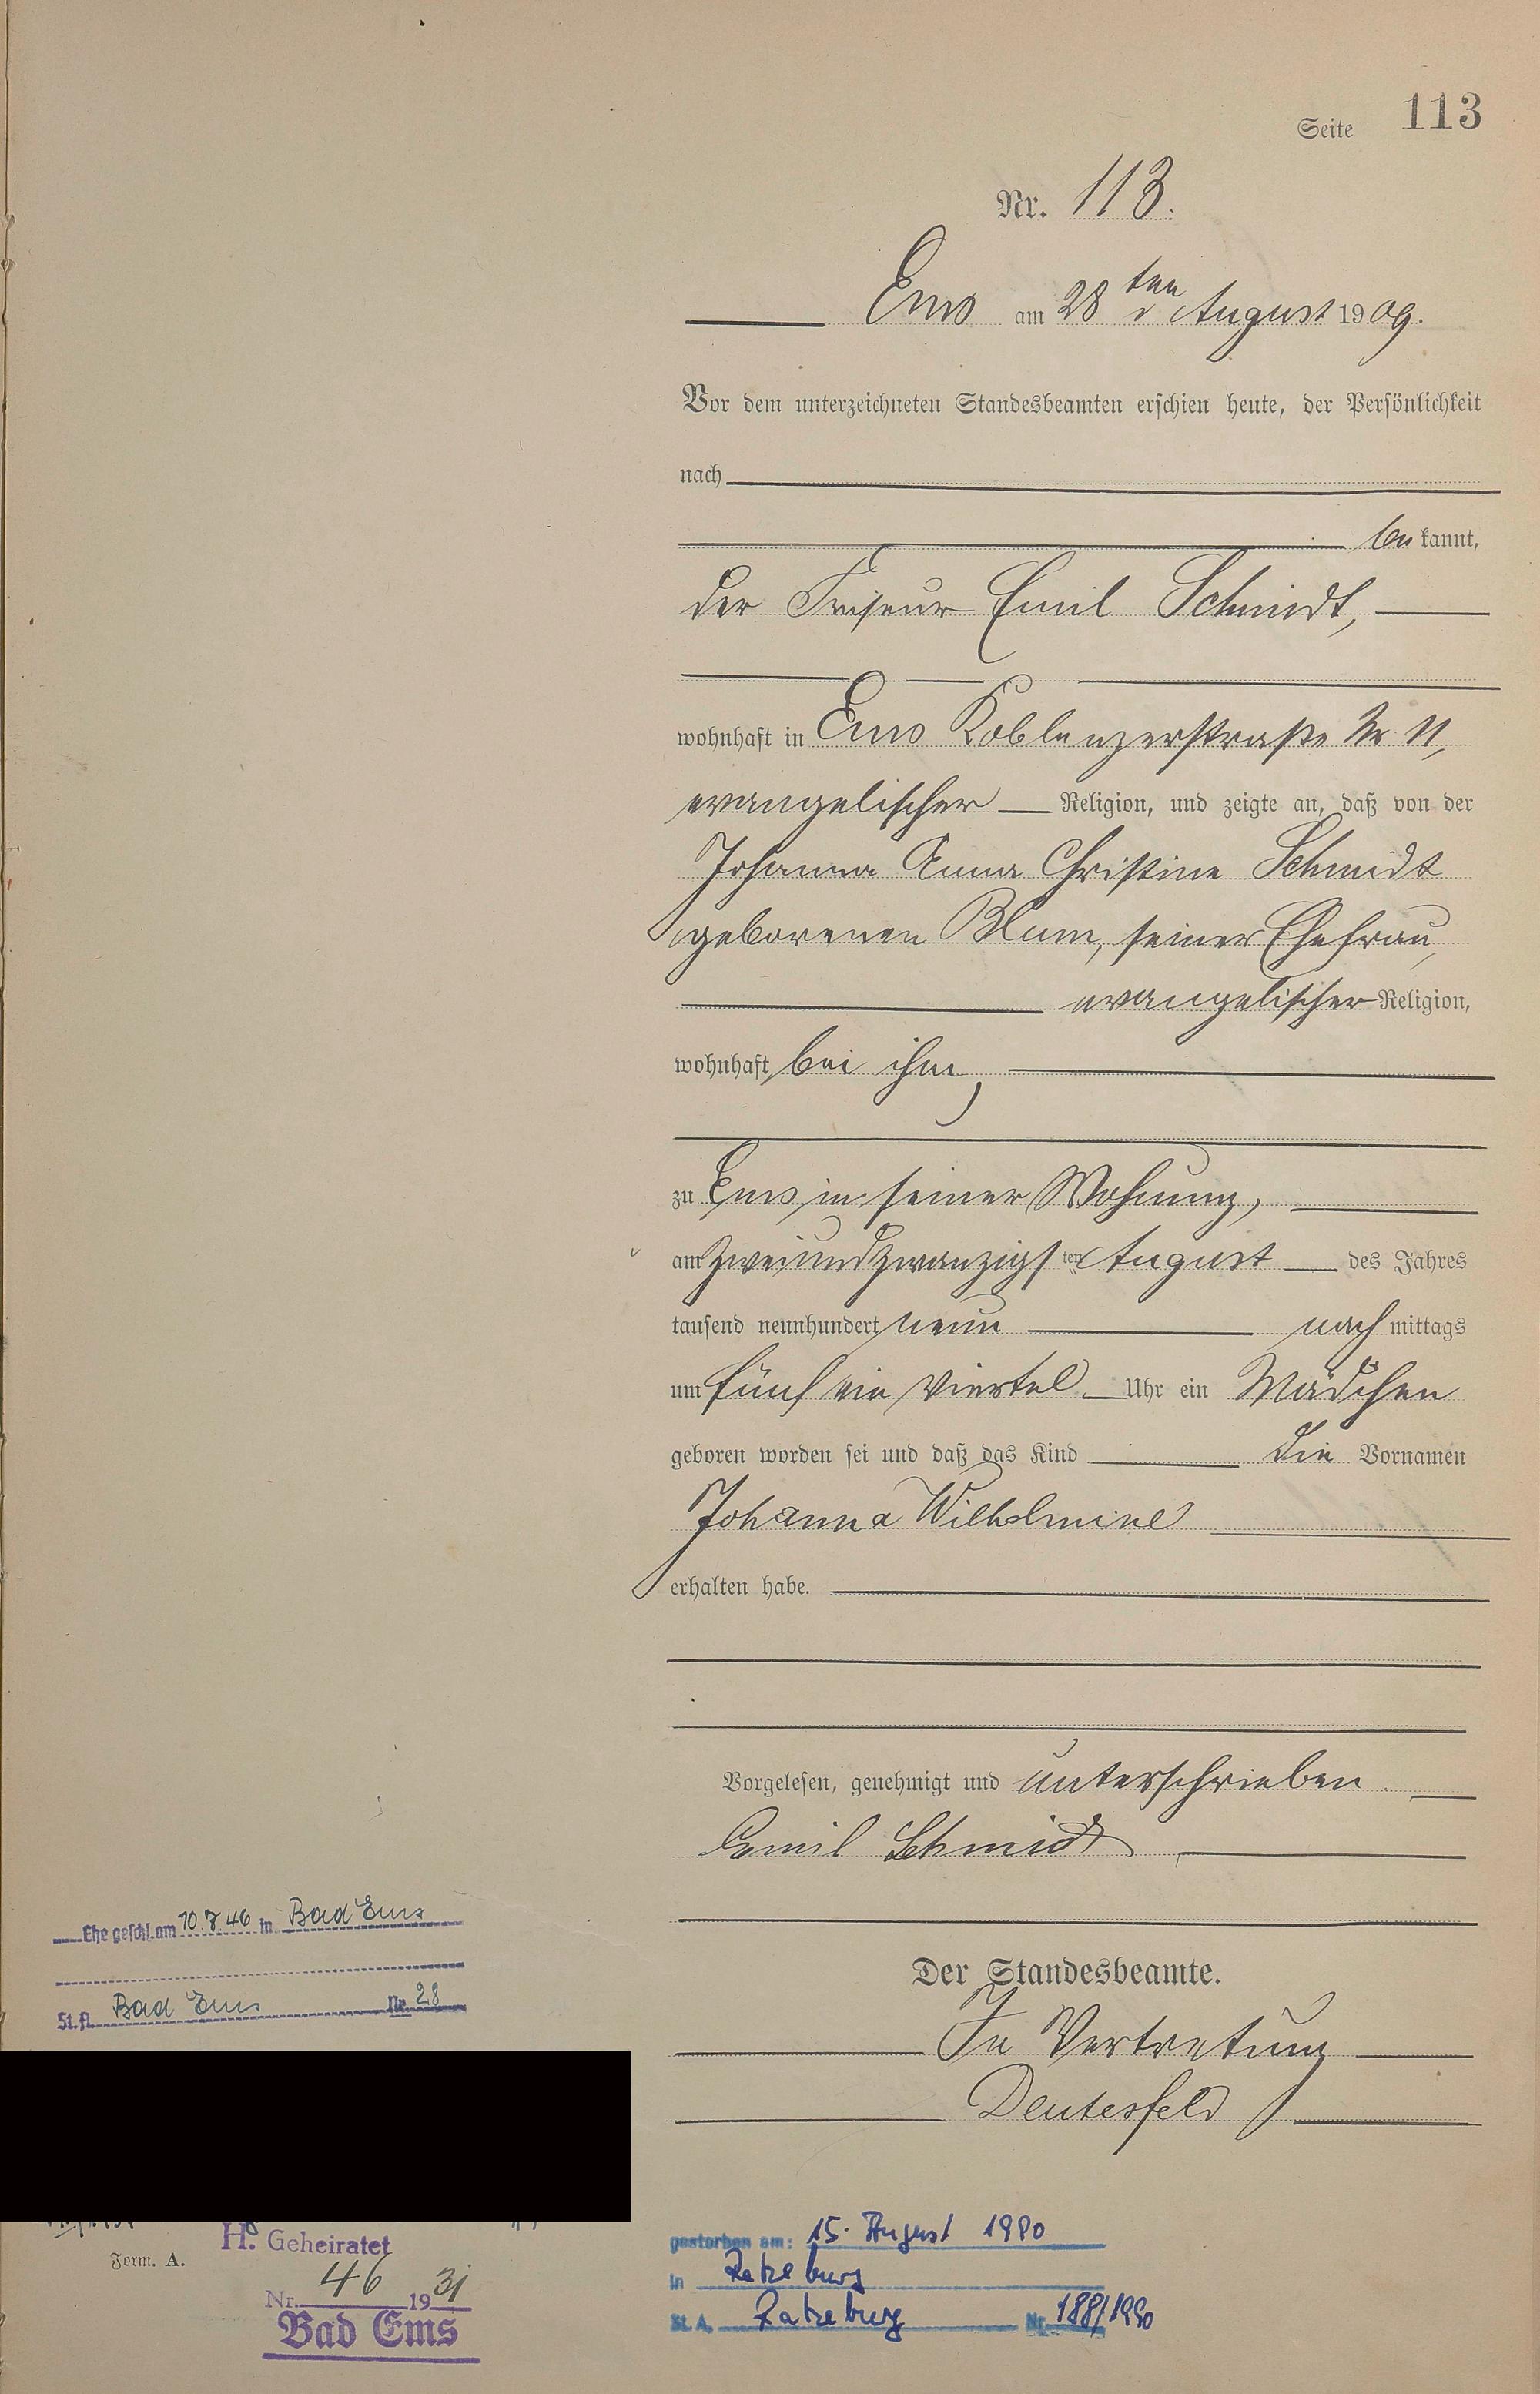 Seite 113
Nr. 113.
Ems am 28ten August 1909.
Vor dem unterzeichneten Standesbeamten erschien heute, der Persönlichkeit
nach
be kannt,
der Friseur Emil Schmidt,
wohnhaft in Ems Koblenzerstraße Nr 11,
evangelischer Religion, und zeigte an, daß von der
Johanna Anna Christine Schmidt
geborenen Blum, seiner Ehefrau,
evangelischer Religion,
wohnhaft bei ihm,
zu Ems, in seiner Wohnung,
am zweiundzwanzigsten August des Jahres
tausend neunhundert neun nach mittags
um fünf ein viertel Uhr ein Mädchen
geboren worden sei und daß das Kind die Vornamen
Johanna Wilhelmine
erhalten habe.
Vorgelesen, genehmigt und unterschrieben
Emil Schmidt
Der Standesbeamte.
In Vertretung
Deutesfeld
Ehe geschl. am 10.7.46 in Bad Ems
St.A. Bad Ems Nr. 28
Form. A.
H. Geheiratet
Nr. 46 1931
Bad Ems
gestorben am: 15. August 1990
in Ratzeburg
St. A. Ratzeburg Nr. 188/1990